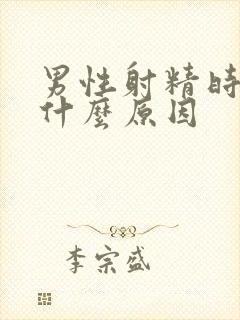 男性射精時
什麼原因
李宗盛